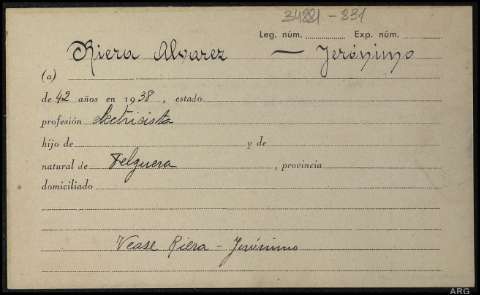 Leg. núm. Exp. núm.
Riera Alvarez — Jerónimo
(a)
de 42 años en 1938, estado
profesión electricista
hijo de y de
natural de Felguera, provincia
domiciliado
Vease Riera - Jerónimo
ARG